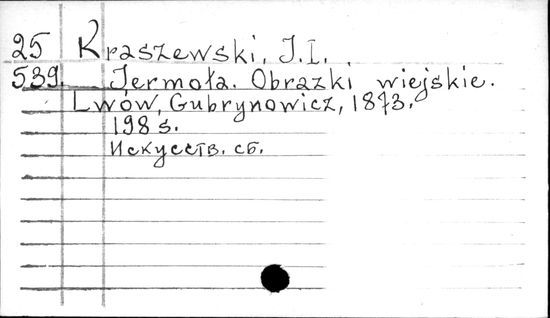 25 Kraszewski, J.I.
539. Jermoła. Obrazki wiejskie.
Lwów, Gubrynowicz, 1873.
198 s.
Искусств. сб.